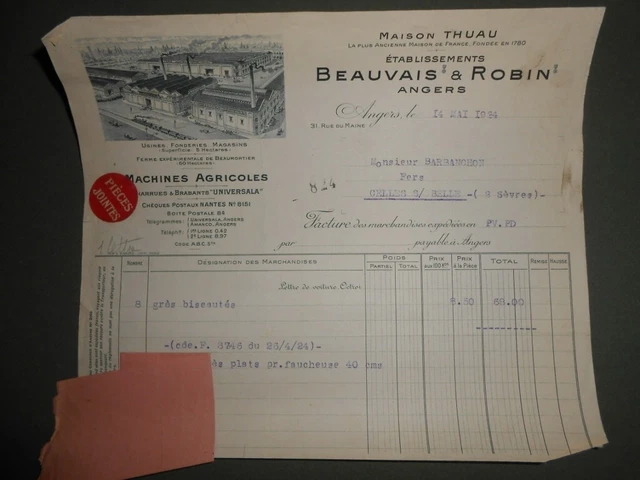 MAISON THUAU
LA PLUS ANCIENNE MAISON DE FRANCE, FONDÉE EN 1780
ÉTABLISSEMENTS
BEAUVAIS & ROBIN
ANGERS
Angers, le 14 MAI 1924
31, RUE DU MAINE
USINES, FONDERIES, MAGASINS
Superficie 5 Hectares
FERME EXPÉRIMENTALE DE BEAUMONTIER
60 Hectares
MACHINES AGRICOLES
CHARRUES & BRABANTS "UNIVERSALA"
CHÈQUES POSTAUX NANTES N° 6151
BOITE POSTALE 84
Télégrammes: UNIVERSALA, ANGERS
AMANCO, ANGERS
Téléph: 1re LIGNE 0.42
2e LIGNE 6.97
CODE A.B.C. 5th
PIÈCES
JOINTES
Monsieur BARBANCHON
Fers
824
CELLES S/ BELLE -( 2 Sèvres)-
Facture des marchandises expédiées en PV.PD
par payable à Angers
NOMBRE DÉSIGNATION DES MARCHANDISES POIDS PARTIEL TOTAL PRIX aux 00 Kos PRIX à la Pièce TOTAL REMISE
Lettre de voiture. Octroi
8 grès biseautés 8.50 68.00
-(cde.P. 8746 du 26/4/24)-
plats pr.faucheuse 40 cms